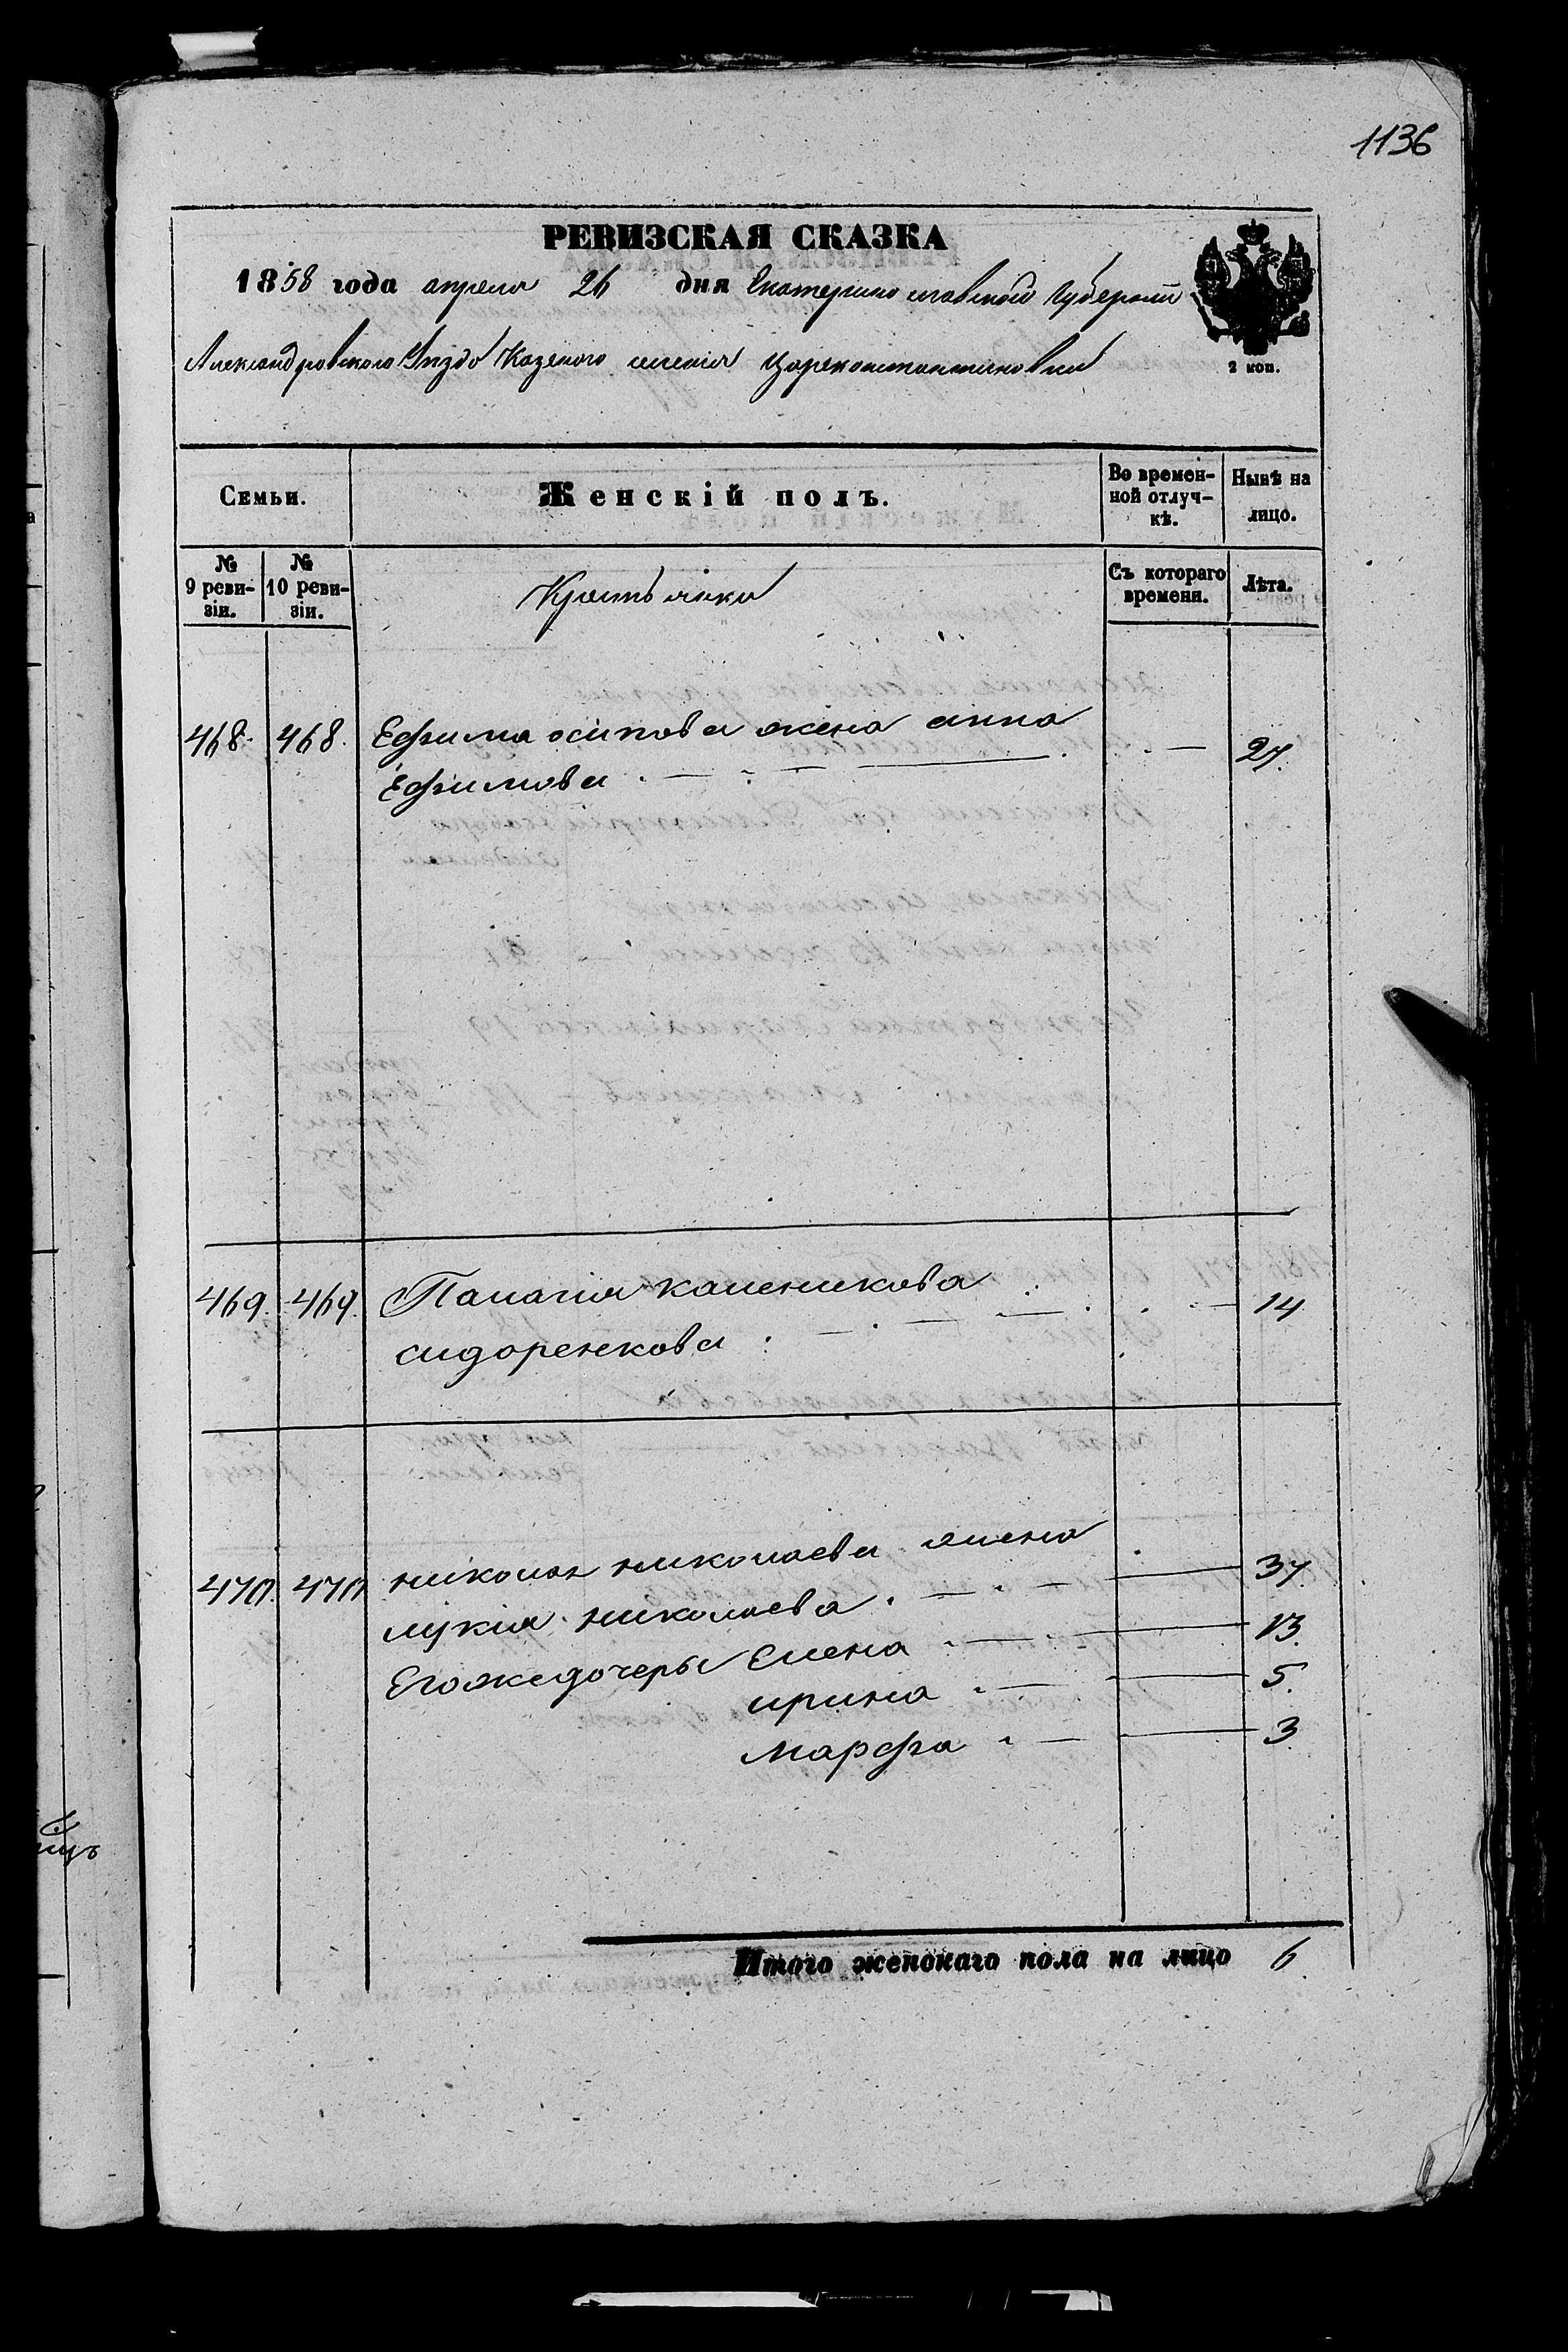 1136
РЕВИЗСКАЯ СКАЗКА
1858 года апреля 26 дня Екатеринославской Губернии
Александровского Уездо Казеного селения Цареконстантиновки
2 коп.
Семьи. Женскій полъ. Во времен-ной отлуч-кѣ. Нынѣ на лицо.
№ 9 реви-зіи. № 10 реви-зіи. Съ котораго времени. Лѣта.
468. 468. Ефима осипова жена анна 27.
Ефимова
469. 469. Панагия каменикова 14
сидоренкова
николая николаева жена
470. 470 лукія николаева 37.
Егожедочеры Елена 13.
ирина 5.
Марфа 3
Итого женскаго пола на лицо 6